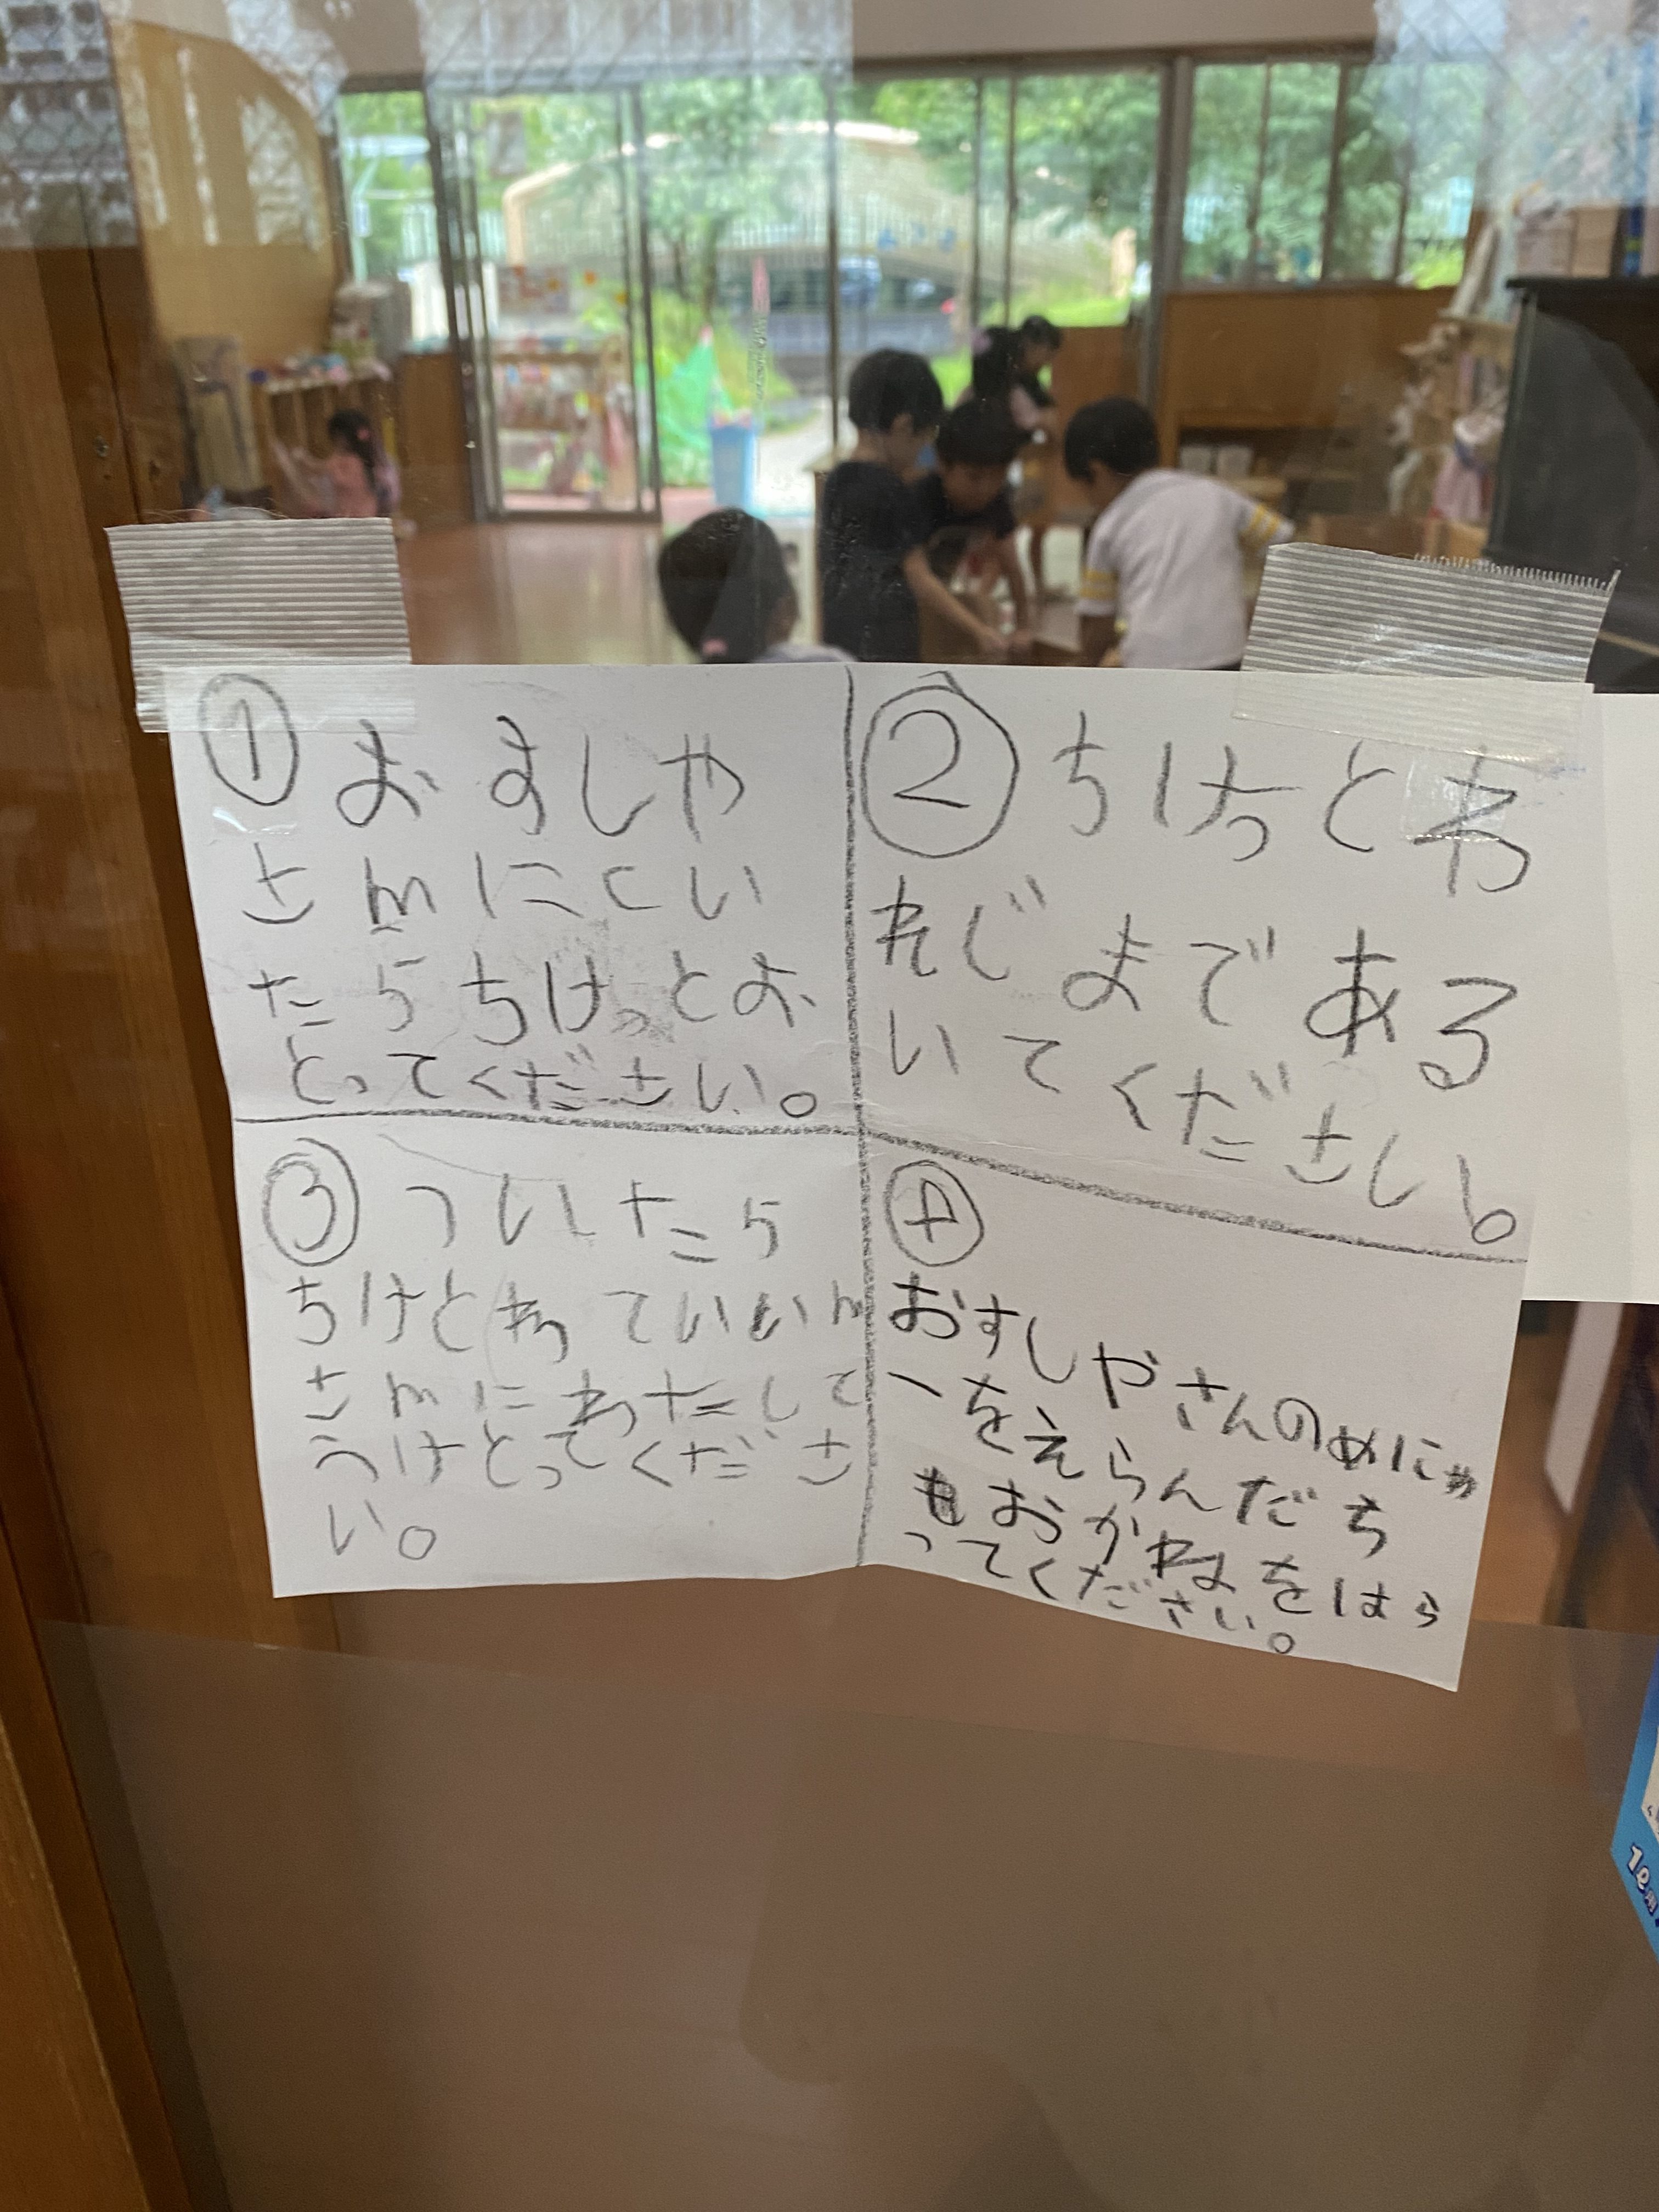 ①おすしや
さんにこい
たらちけっとお
とってください。
②ちけっとわ
れじまである
いてくださし。
③ついたら
ちけとわていいん
さんにわたして
うけとってくださ
い。
④
おすしやさんのめにゅ
ーをえらんだち
おかねをはら
ってください。